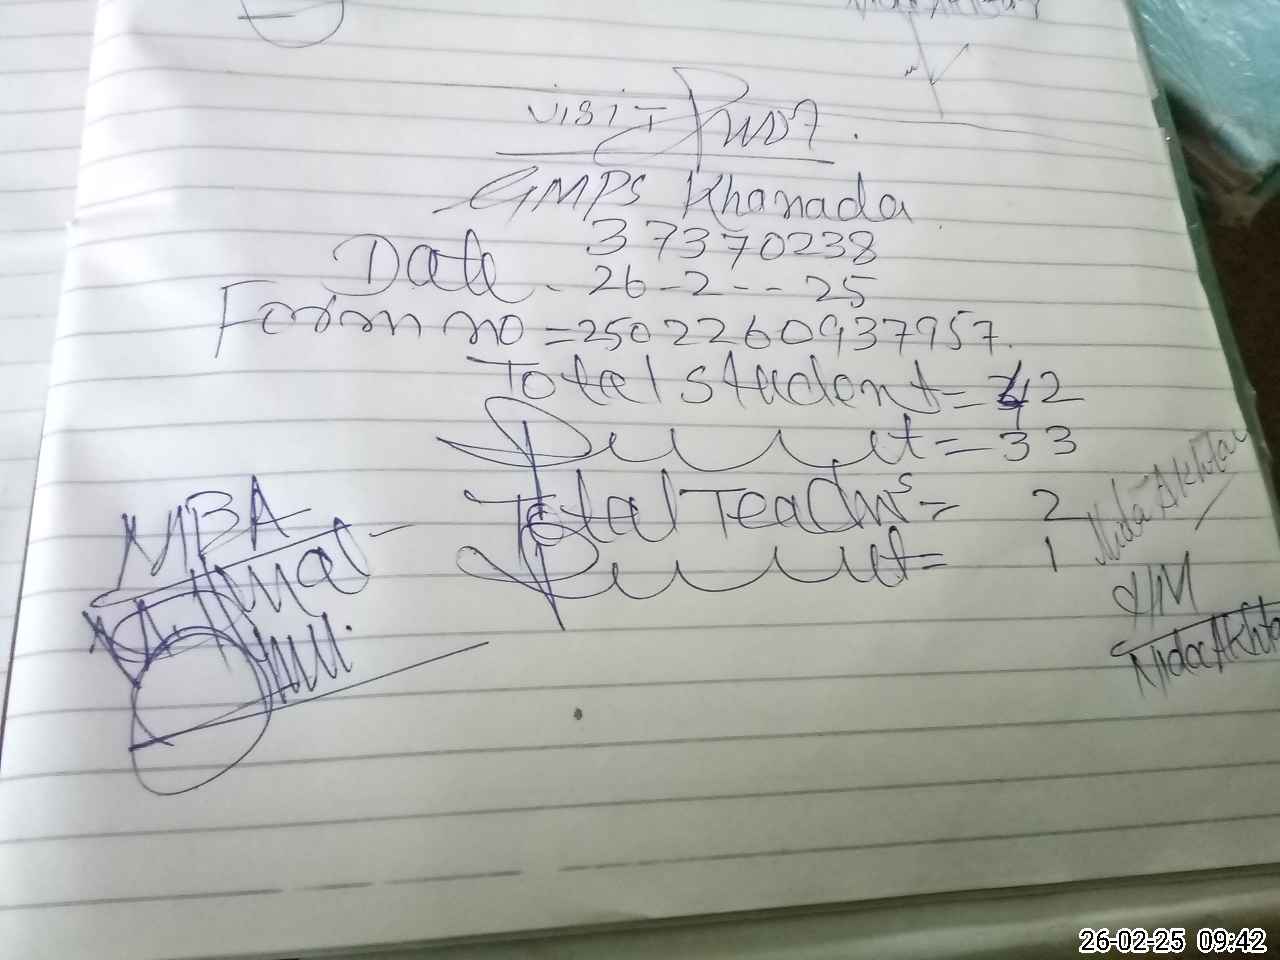 VISIT Proof.
GMPS Khanada
37370238
Date - 26-2--25
Form no = 2502260937957.
Total student = 42
Present = 33
Total Teachers = 2
Present = 1
MBA
Nida Akhtar
HM
Nida Akhtar
26-02-25 09:42